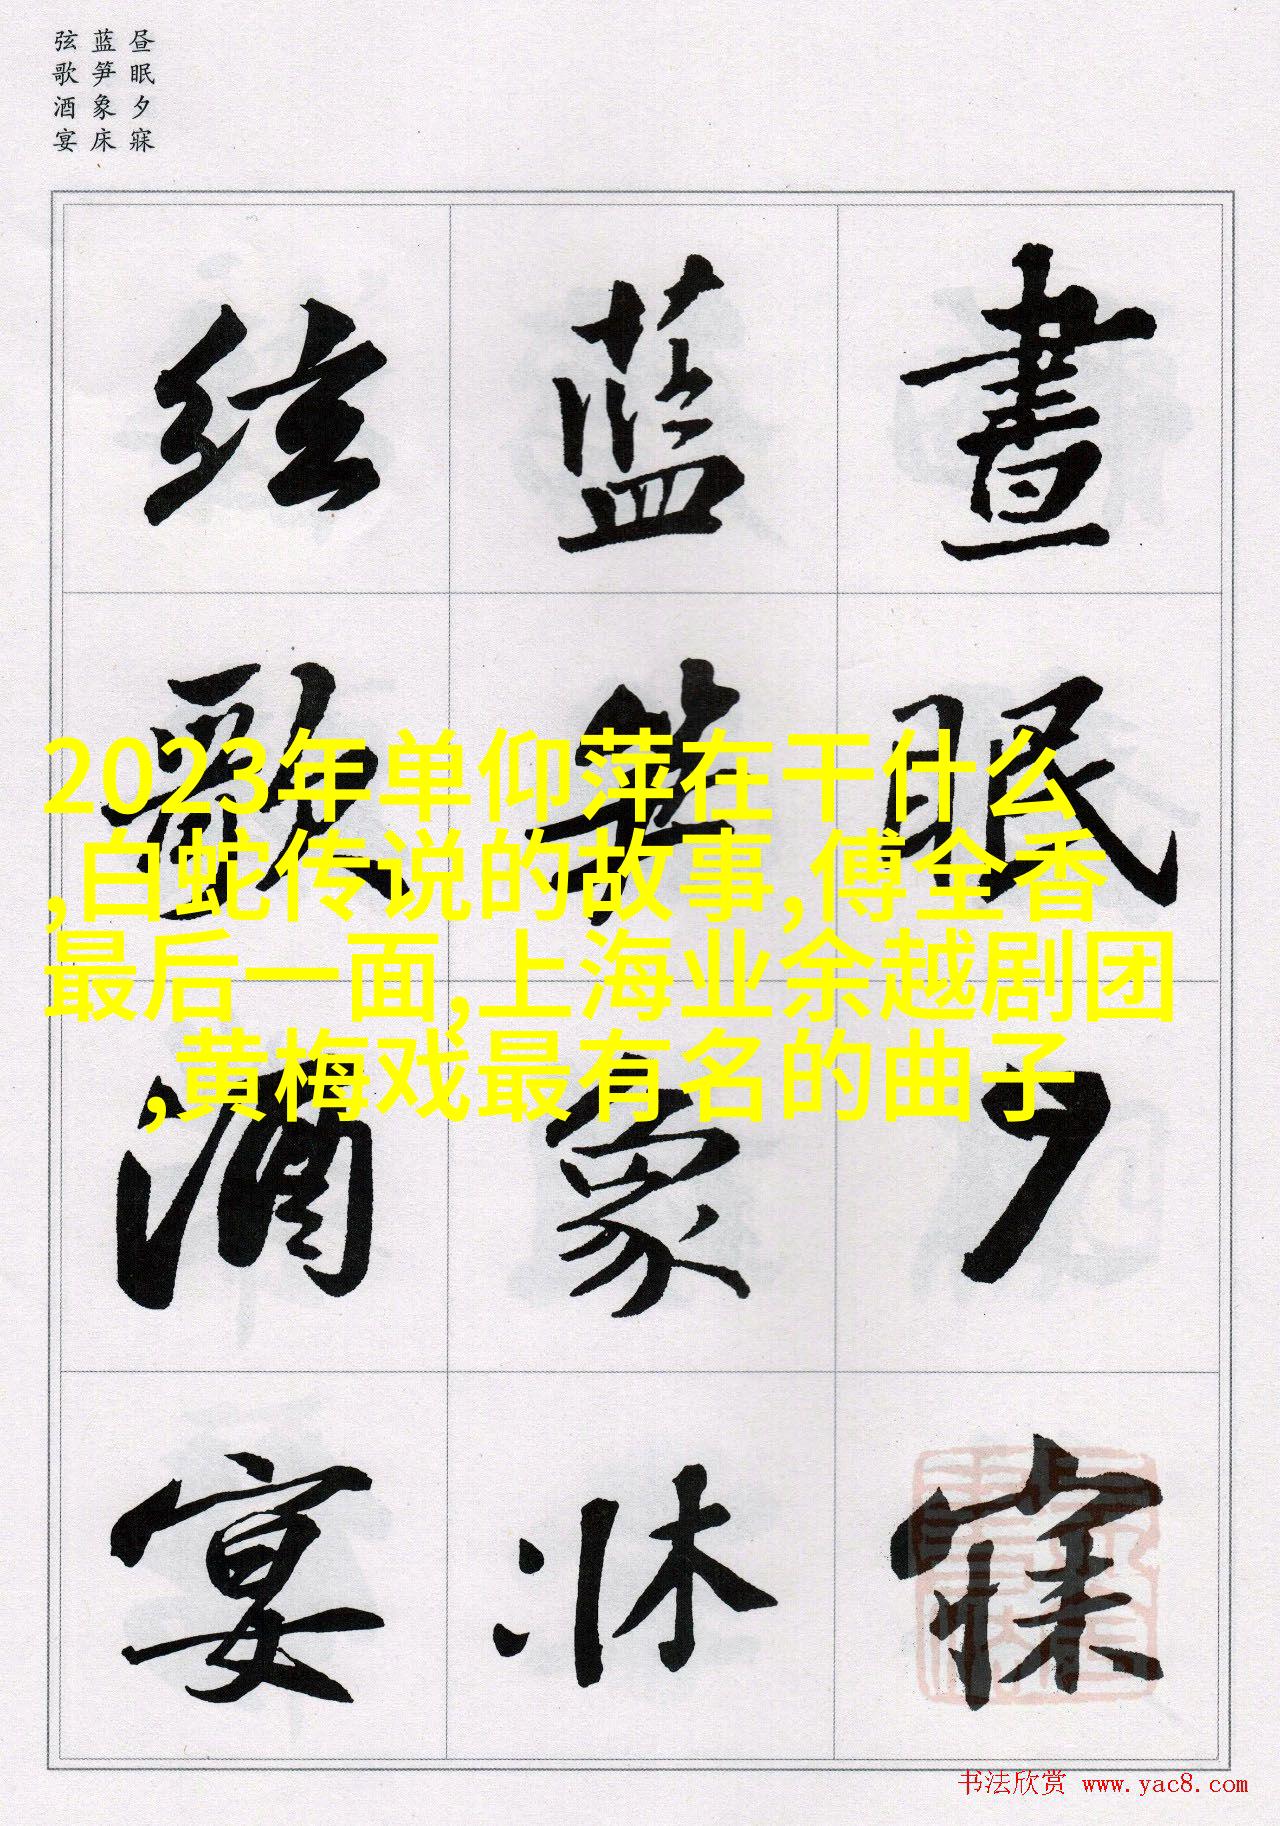 昼眠夕寐
蓝笋象床
弦歌酒宴
晝眠夕寐
蓝笋象牀
弦歌酒宴
2023年单仰萍在干什么
,白蛇传说的故事,傅全香
最后一面,上海业余越剧团
,黄梅戏最有名的曲子
书法欣赏 www.yac8.com